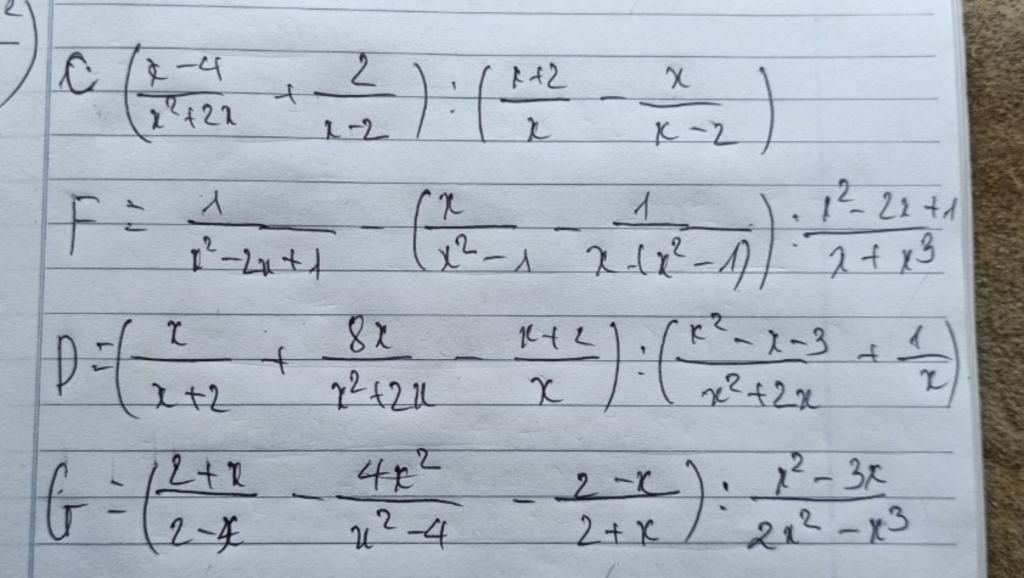 C (x-4/x²+2x + 2/x-2) : (x+2/x - x/x-2)
F = 1/x²-2x+1 - (x/x²-1 - 1/x-(x²-1)) : x²-2x+1/x+x³
D = (x/x+2 + 8x/x²+2x - x+2/x) : (x²-x-3/x²+2x + 1/x)
G = (2+x/2-x - 4x²/x²-4 - 2-x/2+x) : x²-3x/2x²-x³